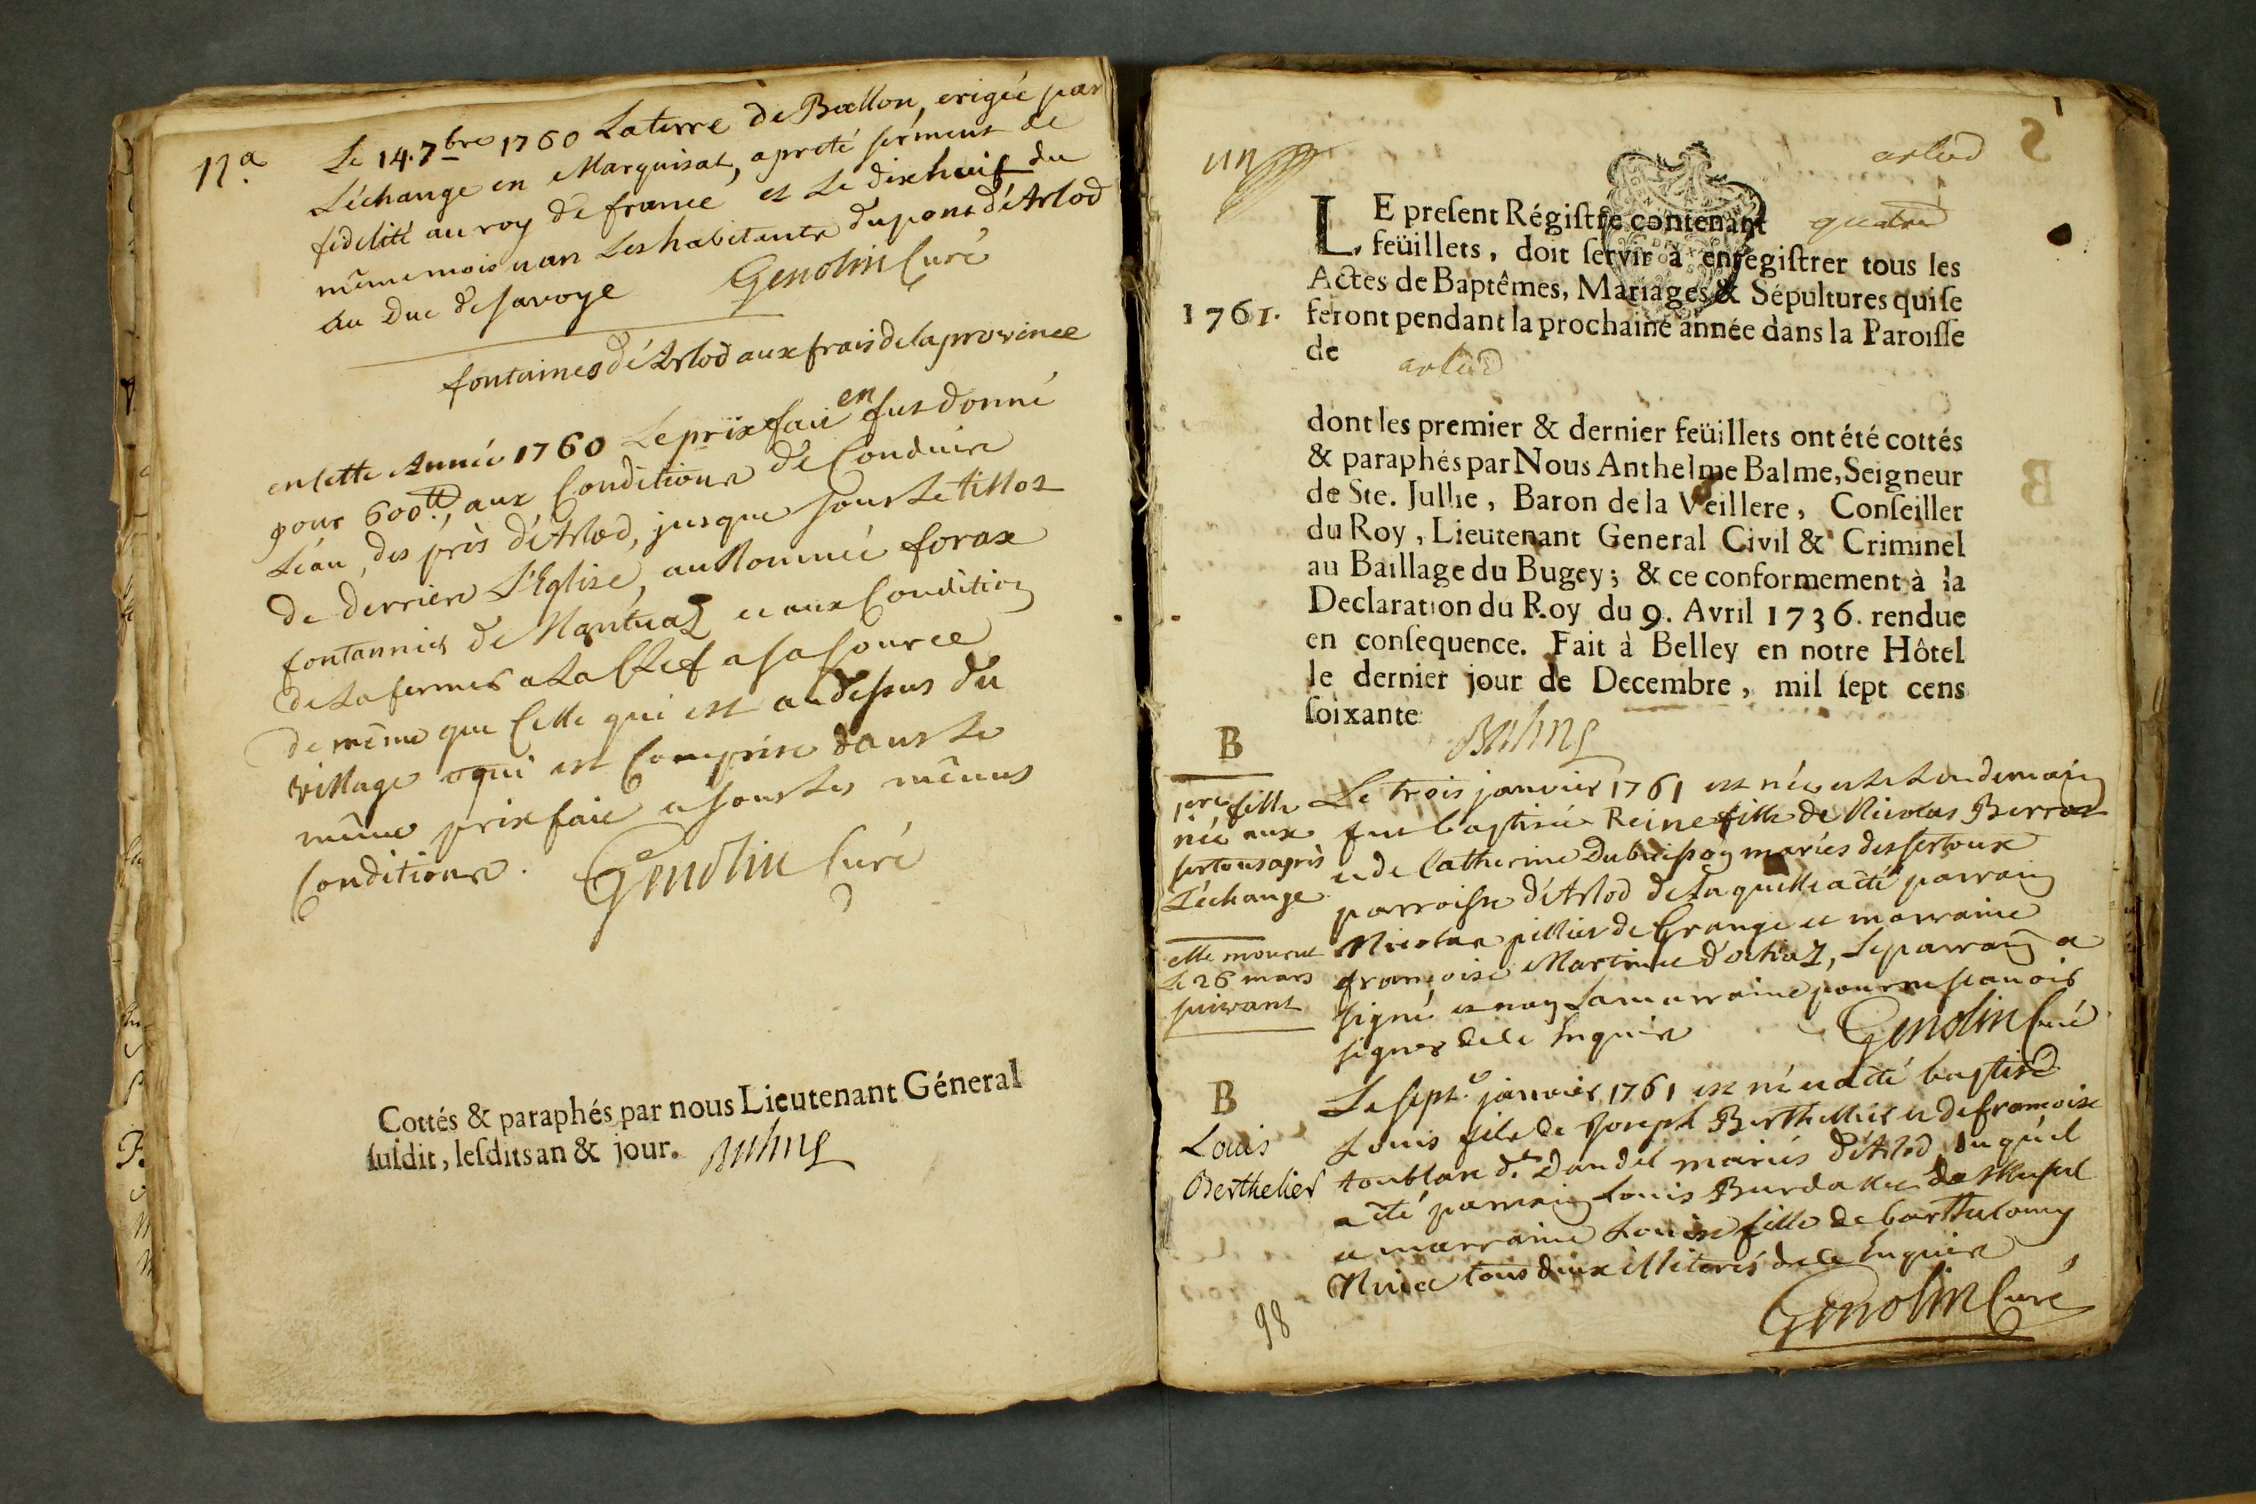 Na. Le 14. 7bre 1760 La terre de Ballon, erigée par
L'échange en Marquisat, a preté serment de
fidelité au roy de france et Le dixhuit du
même mois uan Les habitants du pont d'Arlod
au Duc de Savoye Genolin Curé
fontaines d'Arlod aux frais de la province
en Cette Année 1760 Le prix fait en fut donné
pour 600tt, aux Conditions de Conduire
L'éau, des près d'Arlod, jusque sous Le tillot
de derriere L'Eglise, au Nommée forax
fontannier de Mantuaz et aux Condition
de La fermer a La Clef a sa source
de même que Celle qui est au dessus du
village qui est Comprise dans Le
même prix fait a sous Les mêmes
Conditions. Genolin Curé
Cottés & paraphés par nous Lieutenant Géneral
susdit, lesdits an & jour. Balme
un
arlod
LE present Régistre contenant quatre
feüillets, doit servir à enregistrer tous les
Actes de Baptêmes, Mariages & Sépultures qui se
1761. feront pendant la prochaine année dans la Paroisse
de arlod
dont les premier & dernier feüillets ont été cottés
& paraphés par Nous Anthelme Balme, Seigneur
de Ste. Jullie, Baron de la Veillere, Conseiller
du Roy, Lieutenant General Civil & Criminel
au Baillage du Bugey; & ce conformement à la
Declaration du Roy du 9. Avril 1736. rendue
en consequence. Fait à Belley en notre Hôtel
le dernier jour de Decembre, mil sept cens
soixante Balme
B
1ere fille
née aux
sertous après
L'échange
elle mourut
Le 26 mars
suivant
Le trois janvier 1761 est née et Le Lendemain
fut baptisée Reine fille de Nicolas Berrod
et de Catherine Dubuisson mariés des sertoux
parroisse d'Arlod de laquelle a été parrain
Nicolas pillier de Grange et marraine
françoise Martinet d'ochiaz, Le parrain a
signé et non La marraine pour ne scavoir
signer de ce Enquise Genolin Curé
B
Louis
Berthelier
Le sept.e janvier 1761 est né et a été baptisé
Louis fils de Joseph Berthellier et de françoise
toublan dt. Dandel mariés d'Arlod duquel
a été parrain Louis Burdallet de Musel
et marraine Louise fille de barthelomy
Nivice tous deux illiterés de ce Enquis
Genolin Curé
98